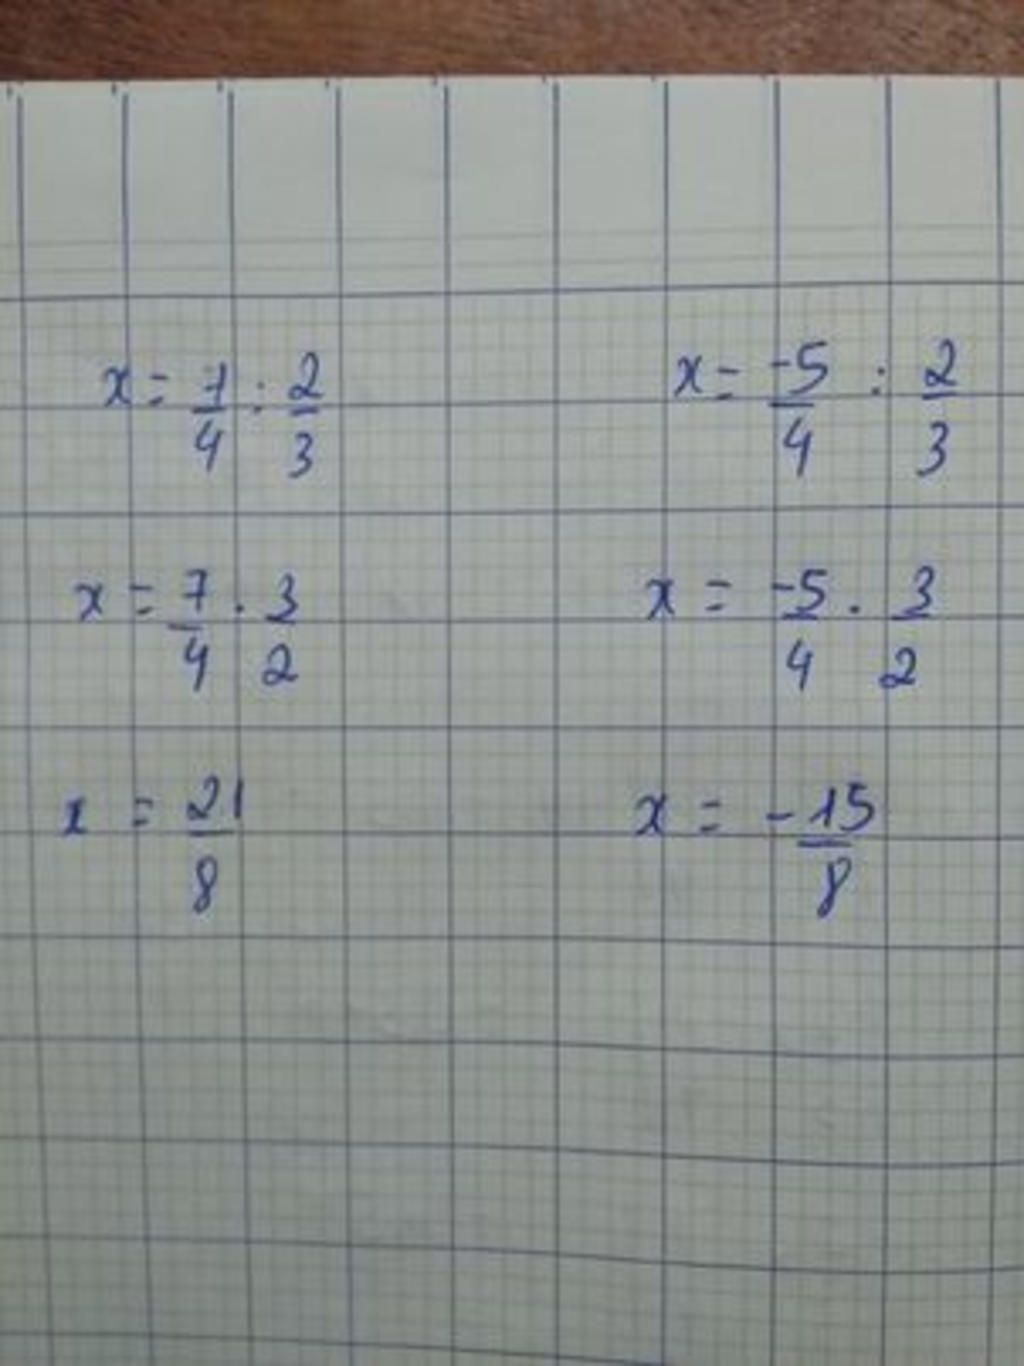 x = 7/4 : 2/3
x = 7/4 . 3/2
x = 21/8
x = -5/4 : 2/3
x = -5/4 . 3/2
x = -15/8